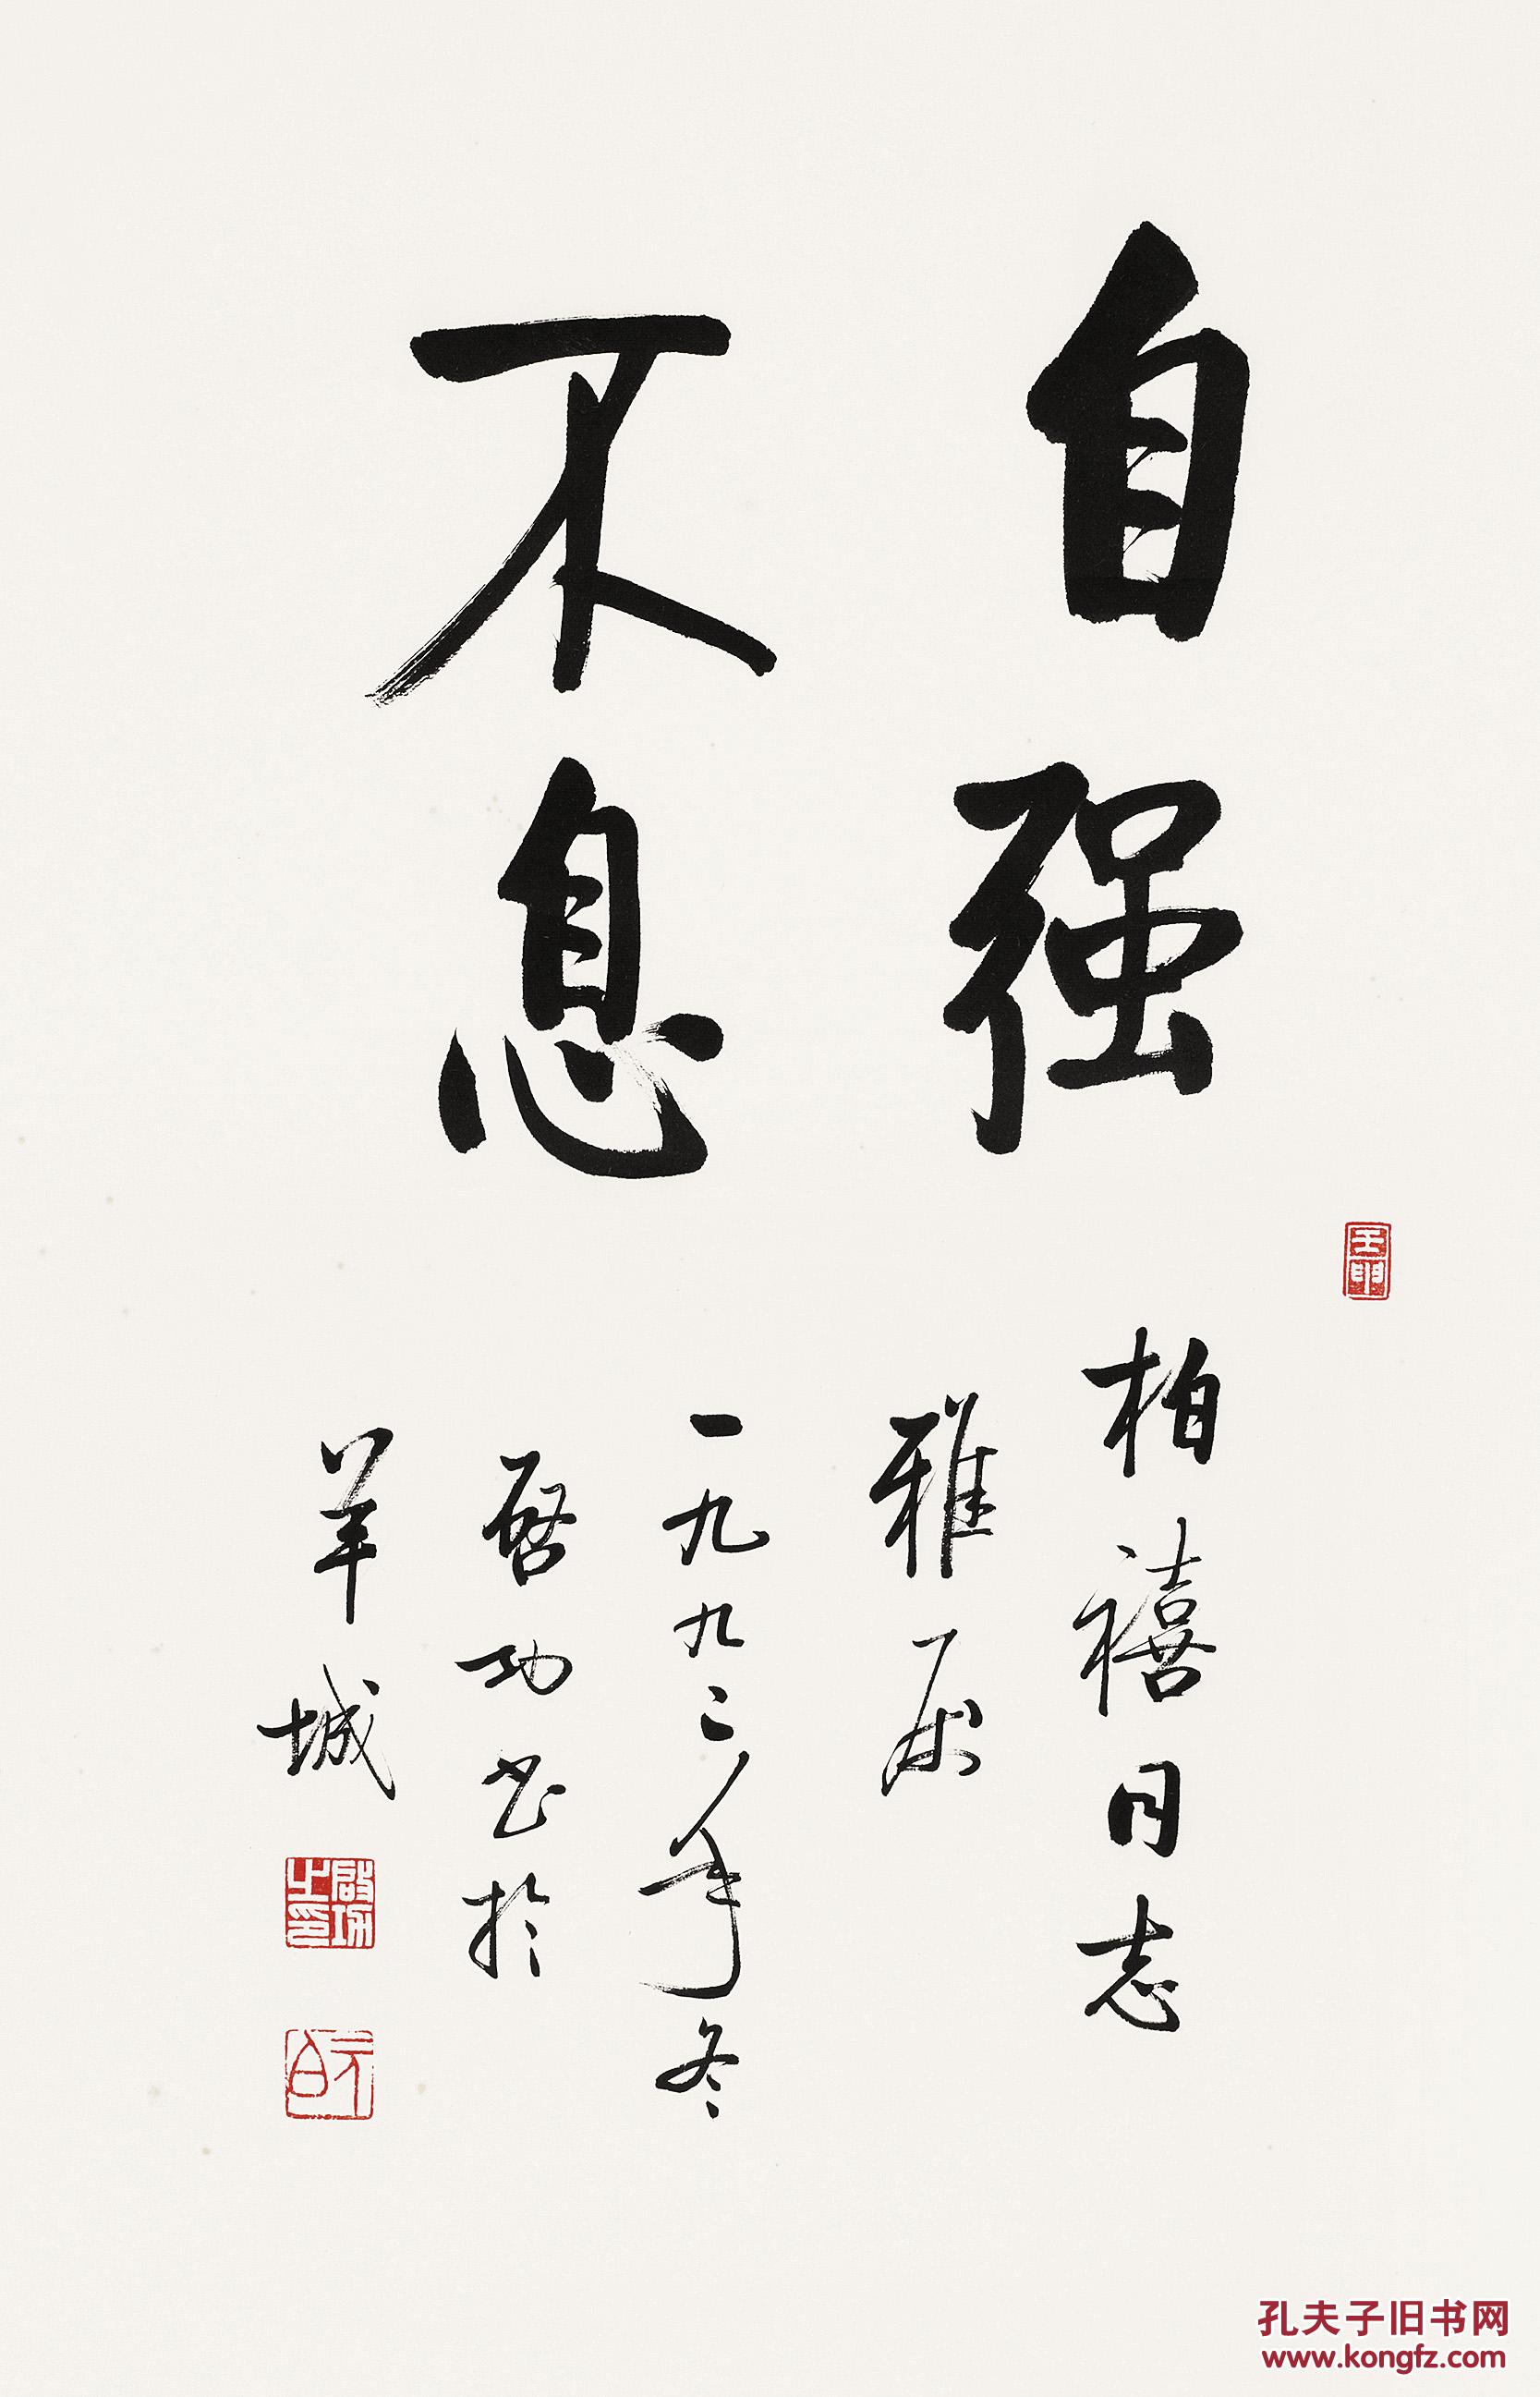 自强
不息
柏禧同志
雅属
一九九二年冬
启功书于
羊城
启功之印
元白
孔夫子旧书网
www.kongfz.com